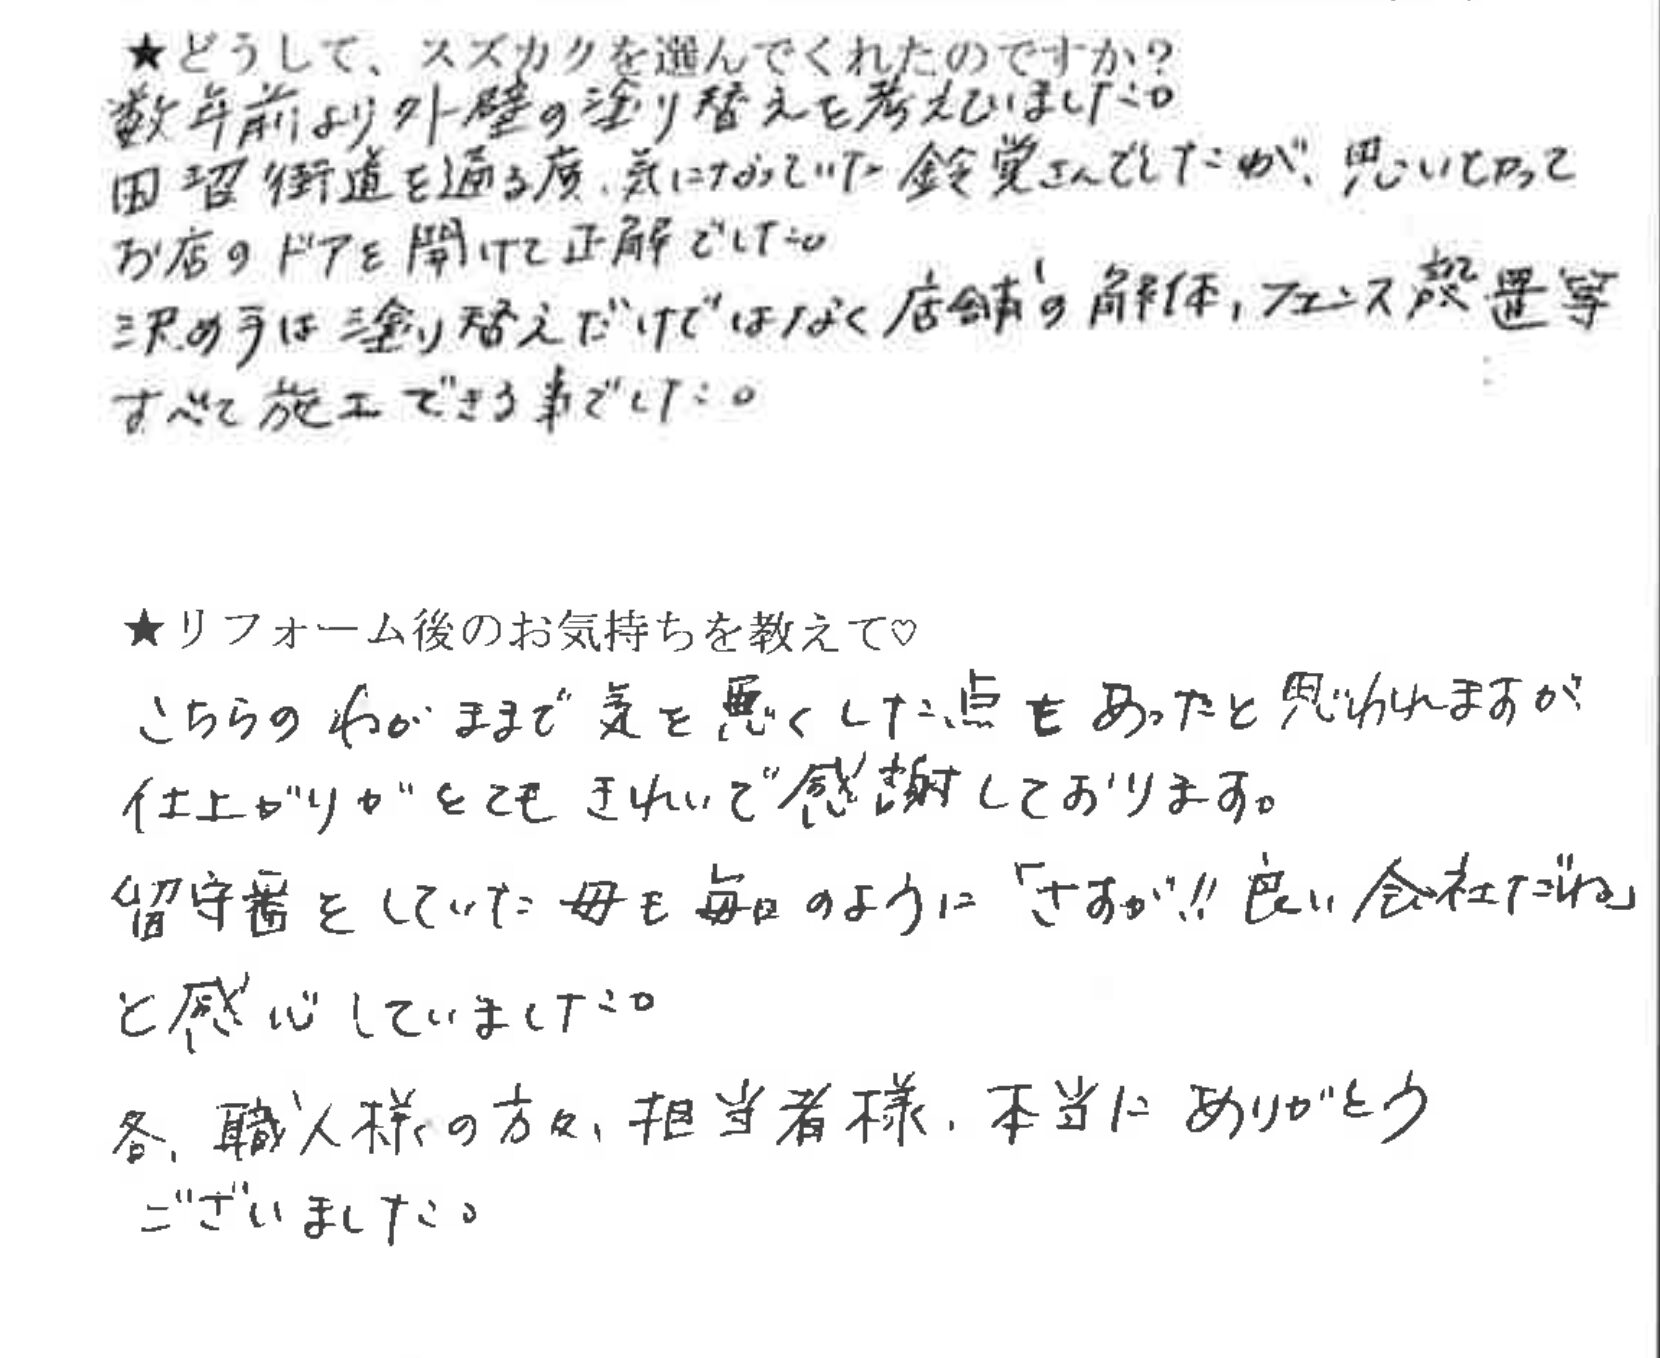 ★どうして、スズカクを選んでくれたのですか？
数年前より外壁の塗り替えを考えていました。
田沼街道を通る度、気になっていた鈴覚さんでしたが、思いきって
お店のドアを開けて正解でした。
決め手は塗り替えだけではなく店舗の解体，フェンス設置等
すべて施工できる事でした。
★リフォーム後のお気持ちを教えて♡
こちらのわがままで気を悪くした点もあったと思われますが
仕上がりがとてもきれいで感謝しております。
留守番をしていた母も毎日のように「さすが!!良い会社だね」
と感心していました。
各、職人様の方々、担当者様、本当にありがとう
ございました。